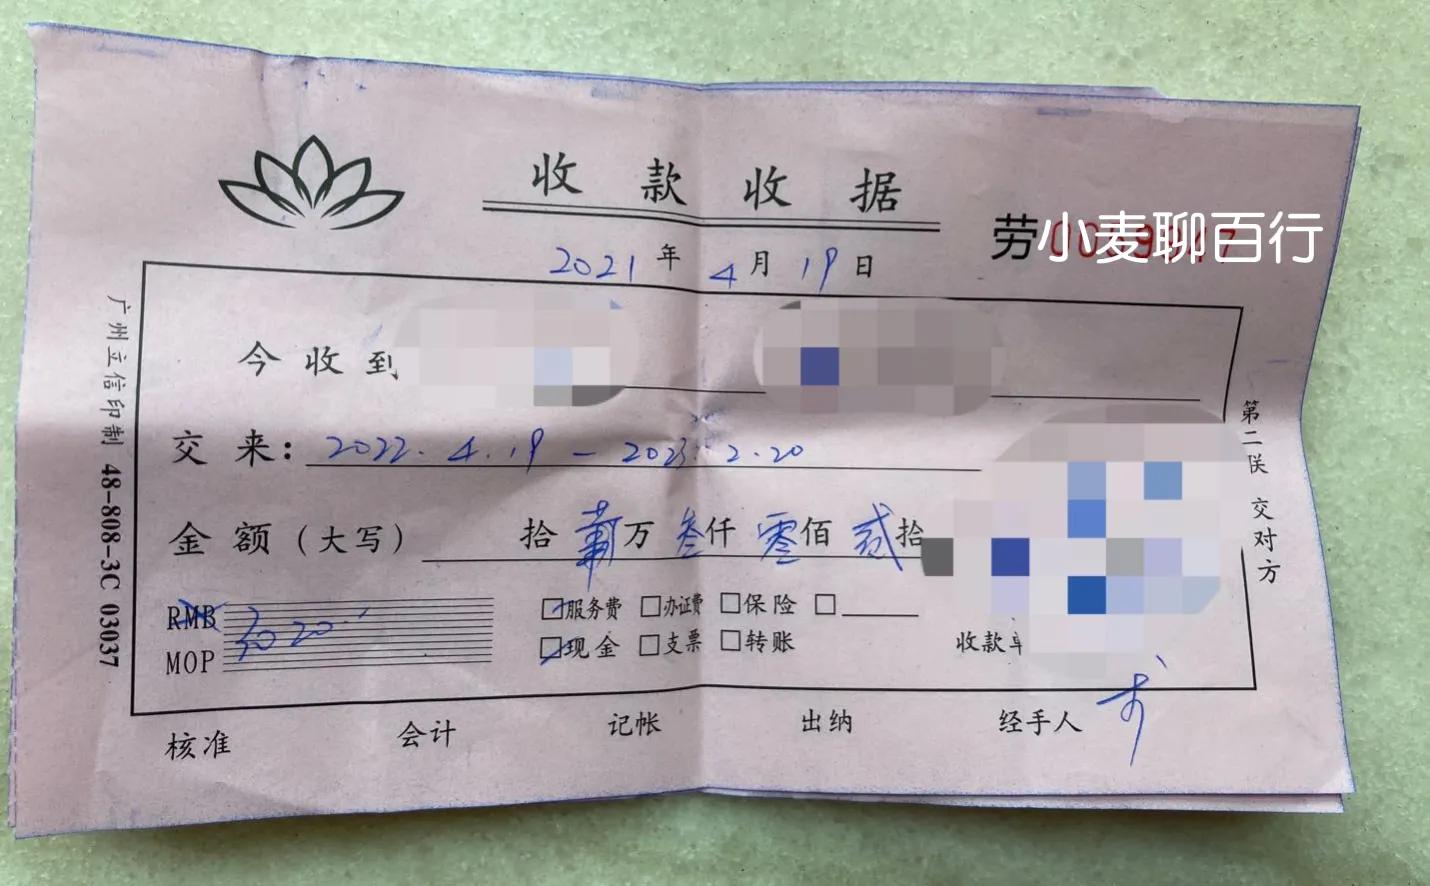 收款收据
劳
小麦聊百行
2021年4月19日
今收到
交来：2022.4.19－2023.2.20
金额（大写） 拾 万叁仟零佰贰拾
RMB 3020
MOP
☑服务费 □办证费 □保险 □
☑现金 □支票 □转账
收款单
核准 会计 记帐 出纳 经手人
广州立信印制 48-808-3C 03037
第二联 交对方